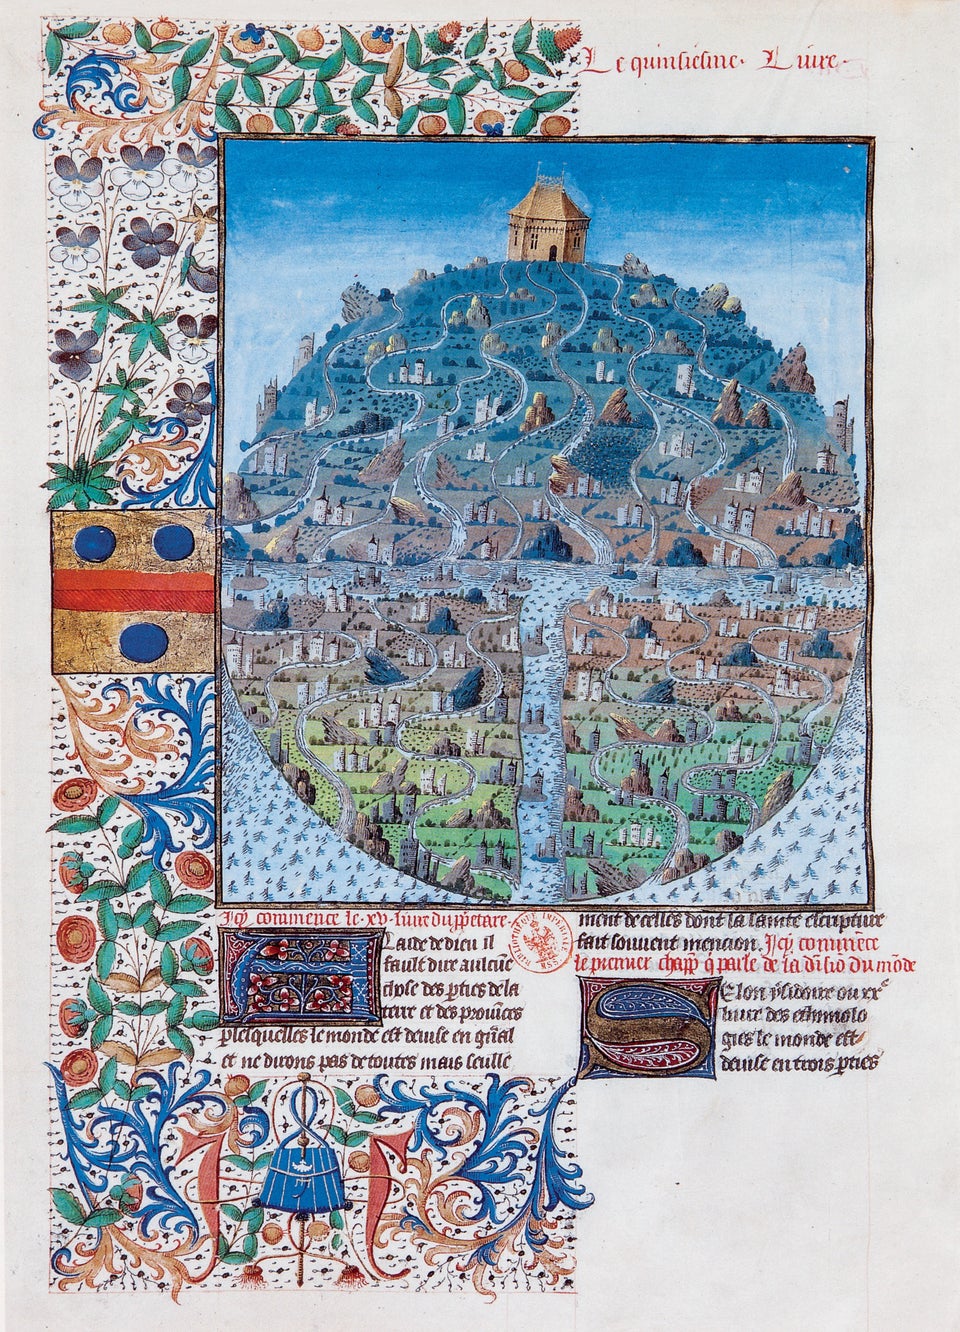 Le quinsiesme. Liure.
Icy commence le xv. liure du ppetare.
A laide de dieu il
fault dire aulcune
chose des pties de la
terre et des prouices
plesquelles le monde est deuise en gnal
et ne dirons pas de toutes mais seulle
ment de celles dont la saincte escripture
fait souuent mencion. Icy commece
le premier chapp q parle de la diuisio du mode
Selon ysidoire ou xve
liure des ethimolo
gies le monde est
deuise en trois pties
BIBLIOTHEQUE IMPERIALE
MSS.